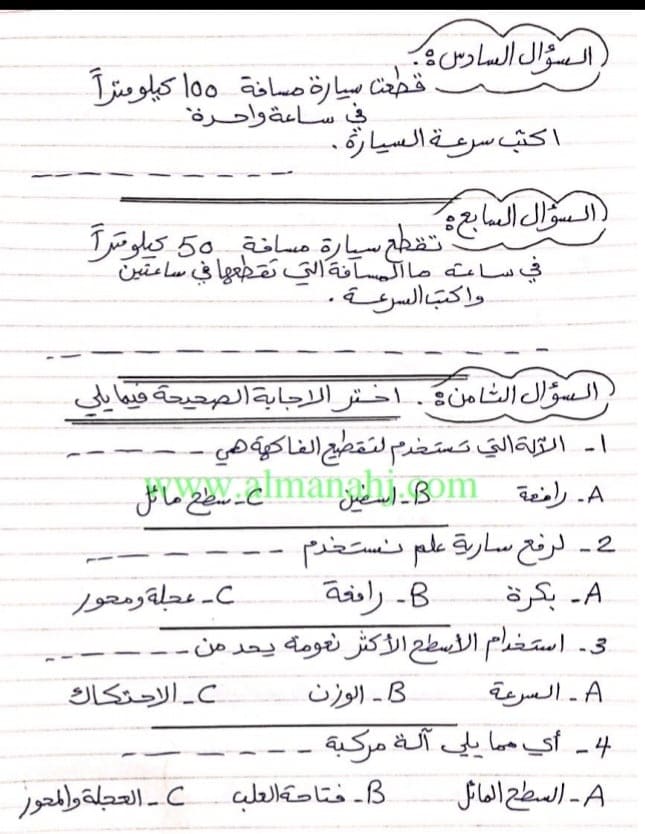 السؤال السادس:
قطعت سيارة مسافة 100 كيلومتراً
في ساعة واحدة
اكتب سرعة السيارة.
السؤال السابع:
تقطع سيارة مسافة 50 كيلومتراً
في ساعة ما المسافة التي تقطعها في ساعتين
واكتب السرعة.
السؤال الثامن: اختر الاجابة الصحيحة فيما يلي
1- الآلة التي تستخدم لتقطيع الفاكهة هي ------
www.almanahj.com
A- رافعة B- اسفين C- سطح مائل
2- لرفع سارية علم نستخدم -------
A- بكرة B- رافعة C- عجلة ومحور
3- استخدام الأسطح الأكثر نعومة يحد من ------
A- السرعة B- الوزن C- الاحتكاك
4- أي مما يلي آلة مركبة -------
A- السطح المائل B- فتاحة العلب C- العجلة والمحور